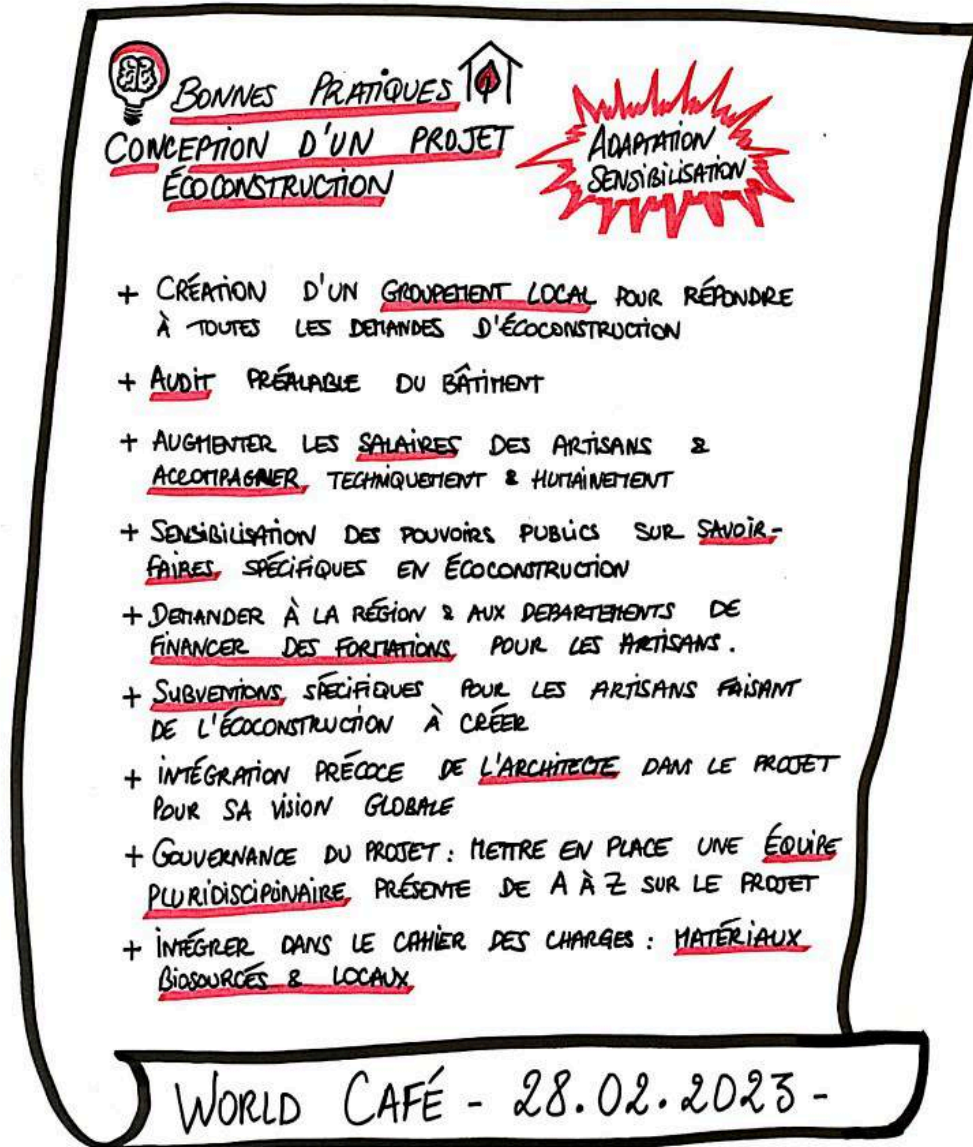 BONNES PRATIQUES
CONCEPTION D'UN PROJET
ÉCOCONSTRUCTION
ADAPTATION
SENSIBILISATION
+ CRÉATION D'UN GROUPEMENT LOCAL POUR RÉPONDRE
À TOUTES LES DEMANDES D'ÉCOCONSTRUCTION
+ AUDIT PRÉALABLE DU BÂTIMENT
+ AUGMENTER LES SALAIRES DES ARTISANS &
ACCOMPAGNER TECHNIQUEMENT & HUMAINEMENT
+ SENSIBILISATION DES POUVOIRS PUBLICS SUR SAVOIR-
FAIRES SPÉCIFIQUES EN ÉCOCONSTRUCTION
+ DEMANDER À LA RÉGION & AUX DEPARTEMENTS DE
FINANCER DES FORMATIONS POUR LES ARTISANS.
+ SUBVENTIONS SPÉCIFIQUES POUR LES ARTISANS FAISANT
DE L'ÉCOCONSTRUCTION À CRÉER
+ INTÉGRATION PRÉCOCE DE L'ARCHITECTE DANS LE PROJET
POUR SA VISION GLOBALE
+ GOUVERNANCE DU PROJET : METTRE EN PLACE UNE ÉQUIPE
PLURIDISCIPLINAIRE PRÉSENTE DE A À Z SUR LE PROJET
+ INTÉGRER DANS LE CAHIER DES CHARGES : MATÉRIAUX
BIOSOURCÉS & LOCAUX
WORLD CAFÉ - 28.02.2023 -